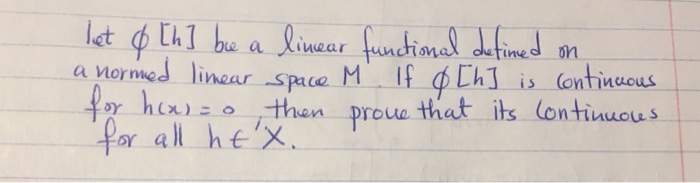 let ϕ [h] be a linear functional defined on
a normed linear space M. If ϕ [h] is continuous
for h(x) = 0, then prove that its continuous
for all h ∈ 'X.